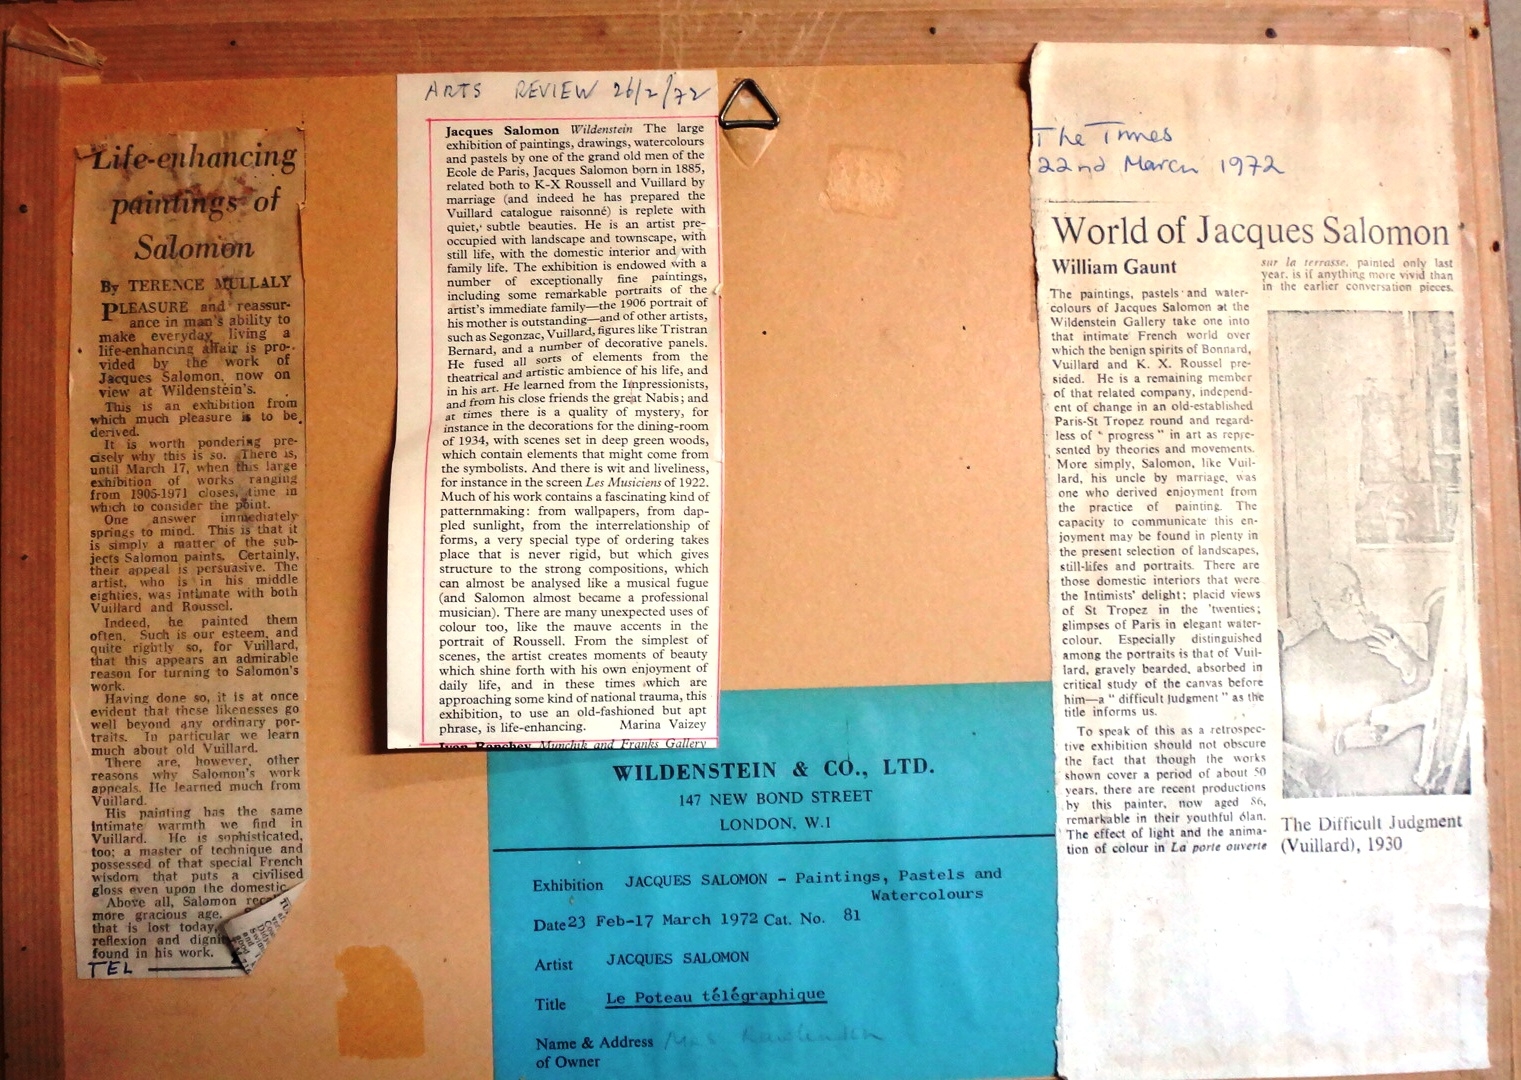 Life-enhancing
paintings of
Salomon
By TERENCE MULLALY
PLEASURE and reassur-
ance in man's ability to
make everyday living a
life-enhancing affair is pro-
vided by the work of
Jacques Salomon, now on
view at Wildenstein's.
This is an exhibition from
which much pleasure is to be
derived.
It is worth pondering pre-
cisely why this is so. There is,
until March 17, when this large
exhibition of works ranging
from 1905-1971 closes, time in
which to consider the point.
One answer immediately
springs to mind. This is that it
is simply a matter of the sub-
jects Salomon paints. Certainly,
their appeal is persuasive. The
artist, who is in his middle
eighties, was intimate with both
Vuillard and Roussel.
Indeed, he painted them
often. Such is our esteem, and
quite rightly so, for Vuillard,
that this appears an admirable
reason for turning to Salomon's
work.
Having done so, it is at once
evident that these likenesses go
well beyond any ordinary por-
traits. In particular we learn
much about old Vuillard.
There are, however, other
reasons why Salomon's work
appeals. He learned much from
Vuillard.
His painting has the same
intimate warmth we find in
Vuillard. He is sophisticated,
too; a master of technique and
possessed of that special French
wisdom that puts a civilised
gloss even upon the domestic.
Above all, Salomon
more gracious age.
that is lost today,
reflexion and
found in his work.
TEL
ARTS REVIEW 26/2/72
Jacques Salomon Wildenstein The large
exhibition of paintings, drawings, watercolours
and pastels by one of the grand old men of the
Ecole de Paris, Jacques Salomon born in 1885,
related both to K-X Roussell and Vuillard by
marriage (and indeed he has prepared the
Vuillard catalogue raisonné) is replete with
quiet, subtle beauties. He is an artist pre-
occupied with landscape and townscape, with
still life, with the domestic interior and with
family life. The exhibition is endowed with a
number of exceptionally fine paintings,
including some remarkable portraits of the
artist's immediate family—the 1906 portrait of
his mother is outstanding—and of other artists,
such as Segonzac, Vuillard, figures like Tristran
Bernard, and a number of decorative panels.
He fused all sorts of elements from the
theatrical and artistic ambience of his life, and
in his art. He learned from the Impressionists,
and from his close friends the great Nabis; and
at times there is a quality of mystery, for
instance in the decorations for the dining-room
of 1934, with scenes set in deep green woods,
which contain elements that might come from
the symbolists. And there is wit and liveliness,
for instance in the screen Les Musiciens of 1922.
Much of his work contains a fascinating kind of
patternmaking: from wallpapers, from dap-
pled sunlight, from the interrelationship of
forms, a very special type of ordering takes
place that is never rigid, but which gives
structure to the strong compositions, which
can almost be analysed like a musical fugue
(and Salomon almost became a professional
musician). There are many unexpected uses of
colour too, like the mauve accents in the
portrait of Roussell. From the simplest of
scenes, the artist creates moments of beauty
which shine forth with his own enjoyment of
daily life, and in these times which are
approaching some kind of national trauma, this
exhibition, to use an old-fashioned but apt
phrase, is life-enhancing. Marina Vaizey
Munchik and Franks Gallery
WILDENSTEIN & CO., LTD.
147 NEW BOND STREET
LONDON, W.1
Exhibition JACQUES SALOMON - Paintings, Pastels and
Watercolours
Date 23 Feb-17 March 1972 Cat. No. 81
Artist JACQUES SALOMON
Title Le Poteau télégraphique
Name & Address
of Owner
The Times
22nd March 1972
World of Jacques Salomon
William Gaunt
The paintings, pastels and water-
colours of Jacques Salomon at the
Wildenstein Gallery take one into
that intimate French world over
which the benign spirits of Bonnard,
Vuillard and K. X. Roussel pre-
sided. He is a remaining member
of that related company, independ-
ent of change in an old-established
Paris-St Tropez round and regard-
less of "progress" in art as repre-
sented by theories and movements.
More simply, Salomon, like Vuil-
lard, his uncle by marriage, was
one who derived enjoyment from
the practice of painting. The
capacity to communicate this en-
joyment may be found in plenty in
the present selection of landscapes,
still-lifes and portraits. There are
those domestic interiors that were
the Intimists' delight; placid views
of St Tropez in the 'twenties;
glimpses of Paris in elegant water-
colour. Especially distinguished
among the portraits is that of Vuil-
lard, gravely bearded, absorbed in
critical study of the canvas before
him—a "difficult judgment" as the
title informs us.
To speak of this as a retrospec-
tive exhibition should not obscure
the fact that though the works
shown cover a period of about 50
years, there are recent productions
by this painter, now aged 86,
remarkable in their youthful élan.
The effect of light and the anima-
tion of colour in La porte ouverte
sur la terrasse, painted only last
year, is if anything more vivid than
in the earlier conversation pieces.
The Difficult Judgment
(Vuillard), 1930